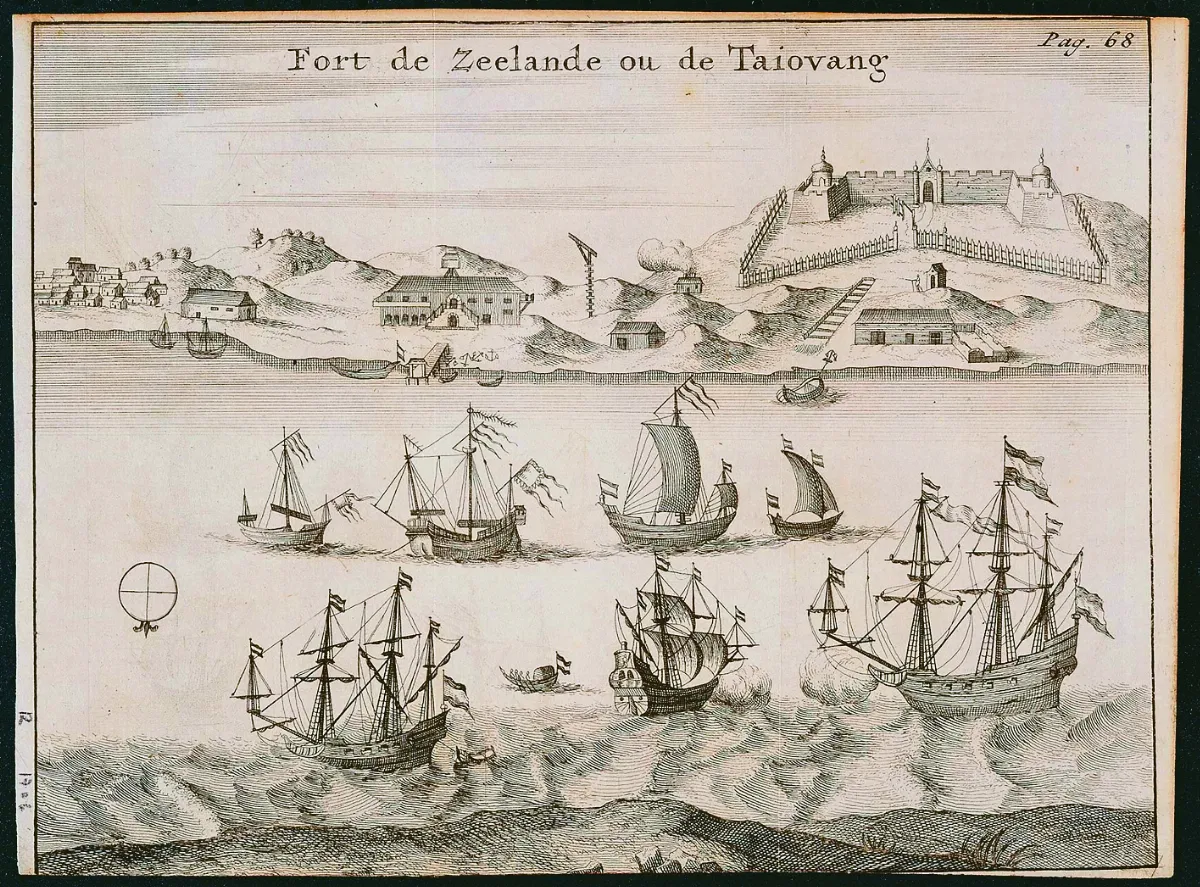 Pag. 68
Fort de Zeelande ou de Taiovang